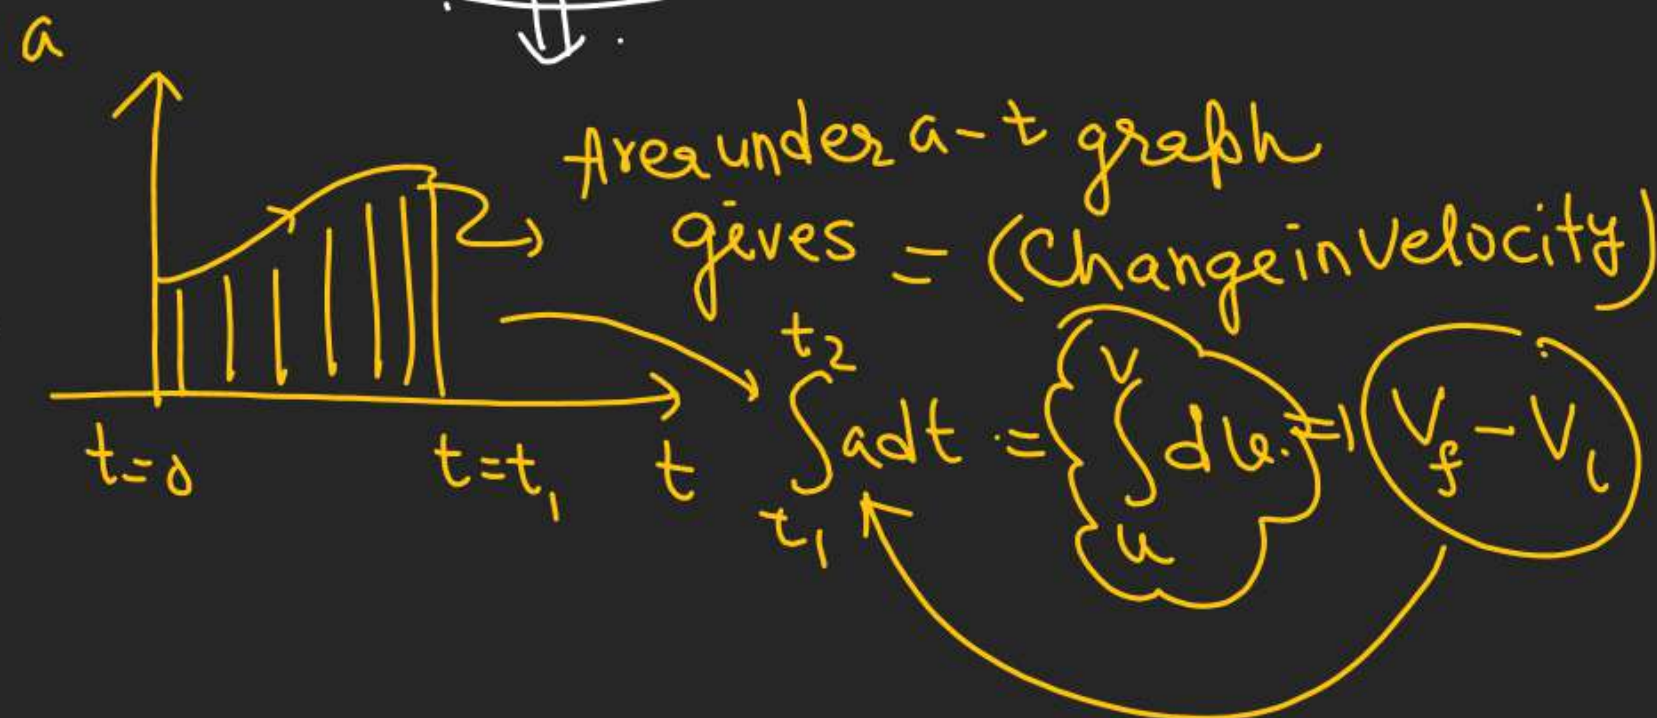 a
Area under a-t graph
gives = (Change in Velocity)
t=0 t=t₁ t
∫ₜ₁ᵗ² a dt = ∫ᵤᵛ dv. ⇒ V_f - V_i